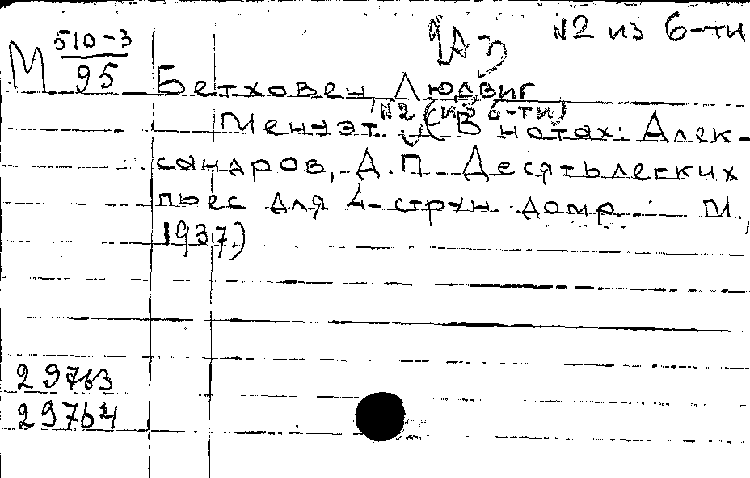 №2 из 6-ти
М 510-3
95
Бетховен, Людвиг
№2 (из 6-ти)
Менуэт. (В нотах: Алек-
сандров, А.П. Десять легких
пьес для 4-струн. домр. М.,
1937.)
29763
29764